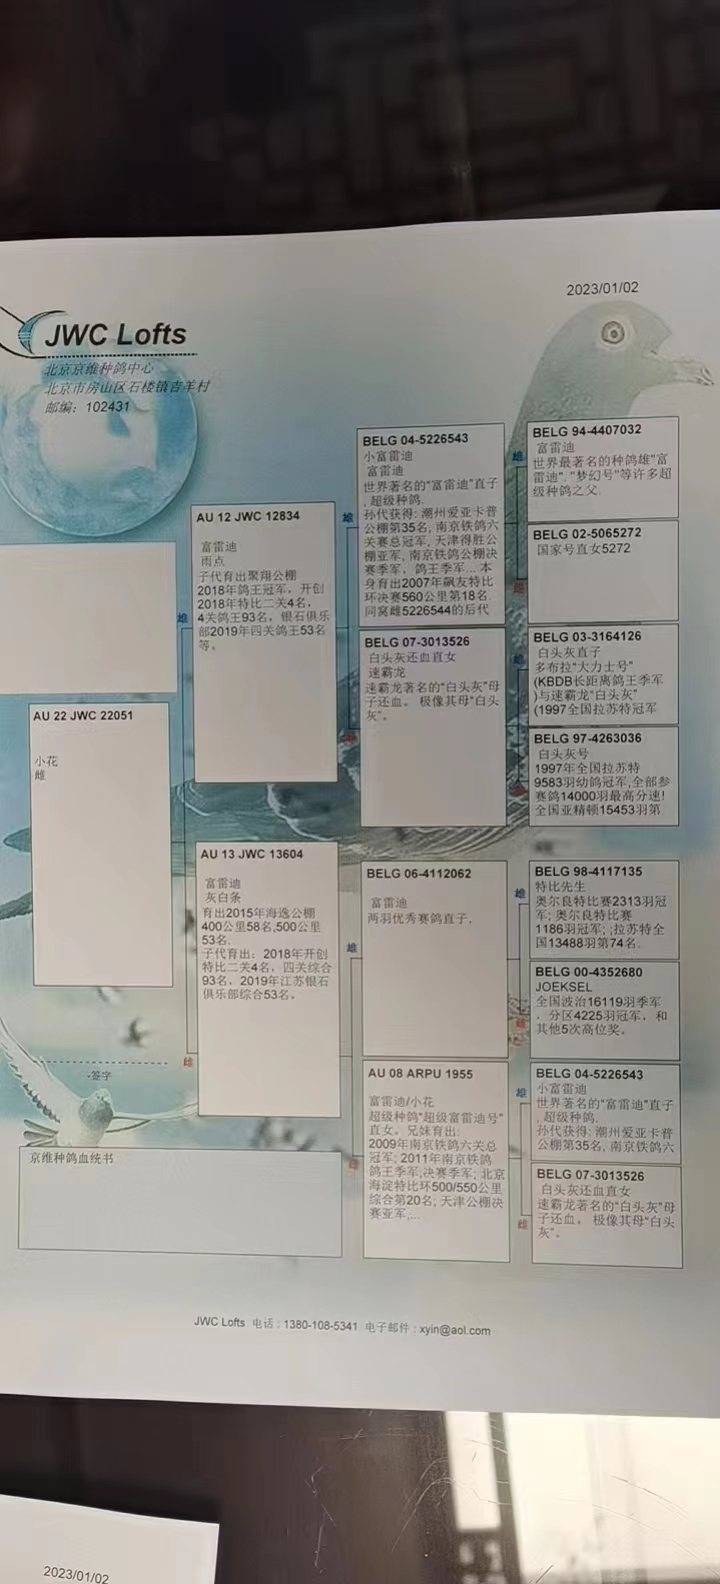 2023/01/02
JWC Lofts
北京京维种鸽中心
北京市房山区石楼镇吉羊村
邮编：102431
AU 22 JWC 22051
小花
雌
AU 12 JWC 12834
富雷迪
雨点
子代育出聚翔公棚
2018年鸽王冠军，开创
2018年特比二关4名，
4关鸽王93名，银石俱乐
部2019年四关鸽王53名
等。
AU 13 JWC 13604
富雷迪
灰白条
育出2015年海逸公棚
400公里58名,500公里
53名.
子代育出：2018年开创
特比二关4名，四关综合
93名，2019年江苏银石
俱乐部综合53名。
雄
雌
BELG 04-5226543
小富雷迪
富雷迪
世界著名的“富雷迪”直子
, 超级种鸽.
孙代获得: 潮州爱亚卡普
公棚第35名, 南京铁鸽六
关赛总冠军, 天津得胜公
棚亚军, 南京铁鸽公棚决
赛季军, 鸽王季军... 本
身育出2007年飙友特比
环决赛560公里第18名.
同窝雌5226544的后代
BELG 07-3013526
白头灰还血直女
速霸龙
速霸龙著名的“白头灰”母
子还血。 极像其母“白头
灰”。
雄
雌
BELG 06-4112062
富雷迪
两羽优秀赛鸽直子.
AU 08 ARPU 1955
富雷迪/小花
超级种鸽“超级富雷迪号”
直女。兄妹育出:
2009年南京铁鸽六关总
冠军; 2011年南京铁鸽
鸽王季军,决赛季军; 北京
海淀特比环500/550公里
综合第20名; 天津公棚决
赛亚军,...
雄
雌
BELG 94-4407032
富雷迪
世界最著名的种鸽雄"富
雷迪". "梦幻号"等许多超
级种鸽之父.
BELG 02-5065272
国家号直女5272
雄
雌
BELG 03-3164126
白头灰直子
多布拉"大力士号"
(KBDB长距离鸽王季军
)与速霸龙“白头灰”
(1997全国拉苏特冠军
BELG 97-4263036
白头灰号
1997年全国拉苏特
9583羽幼鸽冠军,全部参
赛鸽14000羽最高分速!
全国亚精顿15453羽第
雄
雌
BELG 98-4117135
特比先生
奥尔良特比赛2313羽冠
军; 奥尔良特比赛
1186羽冠军; ;拉苏特全
国13488羽第74名.
BELG 00-4352680
JOEKSEL
全国波治16119羽季军
，分区4225羽冠军，和
其他5次高位奖。
雄
雌
BELG 04-5226543
小富雷迪
世界著名的“富雷迪”直子
, 超级种鸽.
孙代获得: 潮州爱亚卡普
公棚第35名, 南京铁鸽六
BELG 07-3013526
白头灰还血直女
速霸龙著名的“白头灰”母
子还血。 极像其母“白头
灰”。
雄
雌
-签字
京维种鸽血统书
JWC Lofts 电话 : 1380-108-5341 电子邮件 : xyin@aol.com
2023/01/02